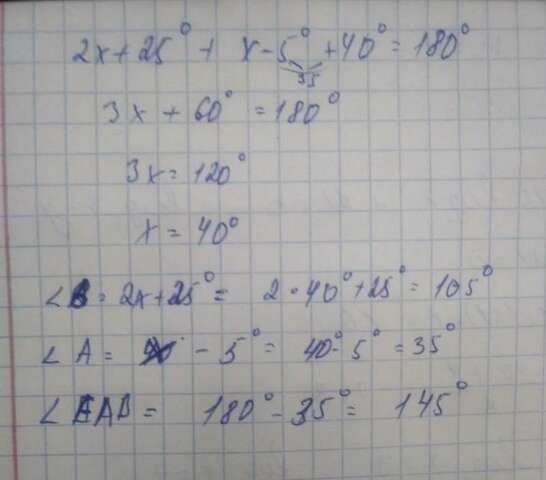 2x + 25° + x - 5° + 40° = 180°
35
3x + 60° = 180°
3x = 120°
x = 40°
∠B = 2x + 25° = 2 · 40° + 25° = 105°
∠A = - 5° = 40° - 5° = 35°
∠EAB = 180° - 35° = 145°